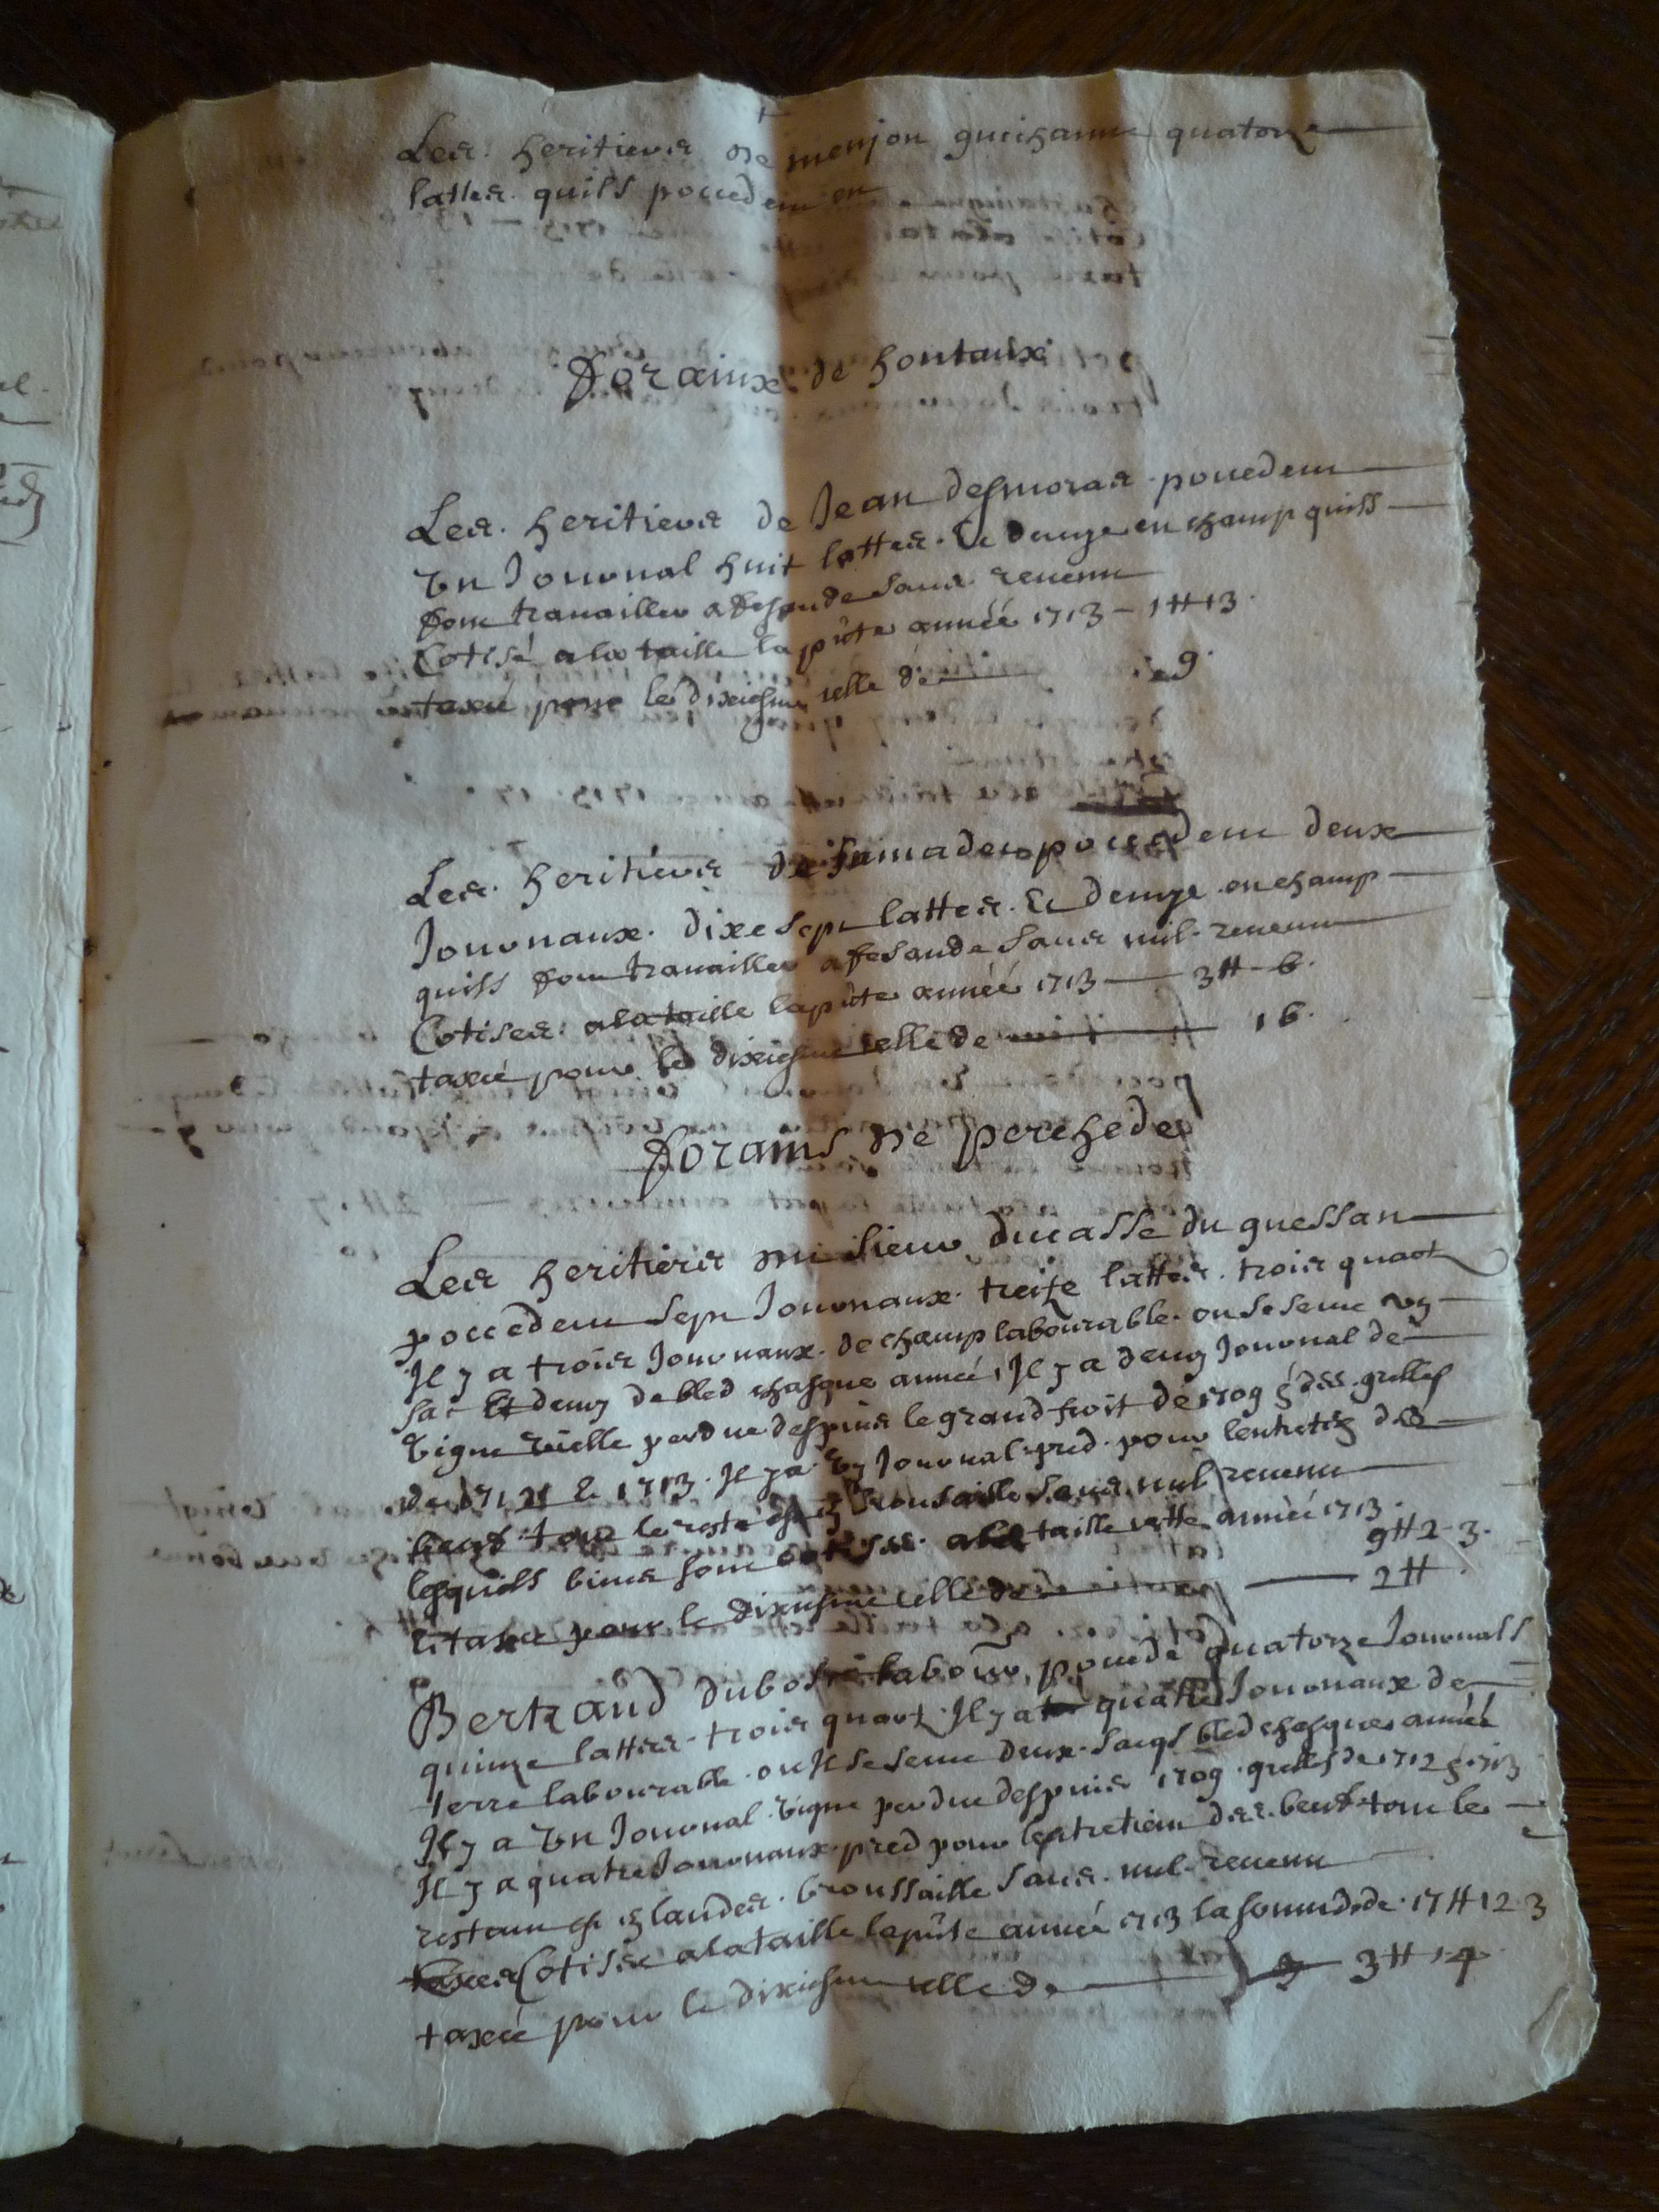 Les heritiers de menjon guichanne quatorze
lattes quils poccedent en
Forainx de hontanx
Les heritiers de Jean desmoras poccedent
un Journal huit lattes Et demye en champ quils
font travailler a fesande sans revenu
Cotisé a la taille la pnte année 1713 – 1 ₶ 13
taxé pour le dixiesme celle de 9
Les heritiers de poccedent deux
Journaux dixe sept lattes Et demye en champ
quils font travailler a fesande sans nul revenu
Cotises a la taille la pnte année 1713 — 3 ₶ – 6
taxé pour le dixiesme celle de 16
Forains de perchede
Les heritiers sieur ducasse du guessan
poccedent sept Journaux treize lattes trois quart
Il y a trois Journaux de champ labourable ou se seme un
sac Et demy de bled chasque année, Il y a demy Journal de
vigne vielle perdue despuis le grand froit de 1709 grelles
de 1712 & 1713 Il y a un Journal pred pour lentretien des
beufs tout le reste est en brousaille sans nul revenu
lesquels biens sont cotises a la taille cette année 1713
9 ₶ 2 – 3
Et taxé pour le dixiesme celle de — 2 ₶
Bertrand dubosc labour poccede quatorze Journals
quinze lattes trois quart Il y a quatre Journaux de
terre labourable ou Il se seme deux sacqs bled chasque année
Il y a un Journal vigne perdue despuis 1709 grelles de 1712 & 1713
Il y a quatre Journaux pred pour lentretien des beufs tout le
restant est en landes broussaille sans nul revenu
Cotisé a la taille la pnte année 1713 la somme de 17 ₶ 12 3
taxé pour le dixiesme celle de 3 ₶ 14